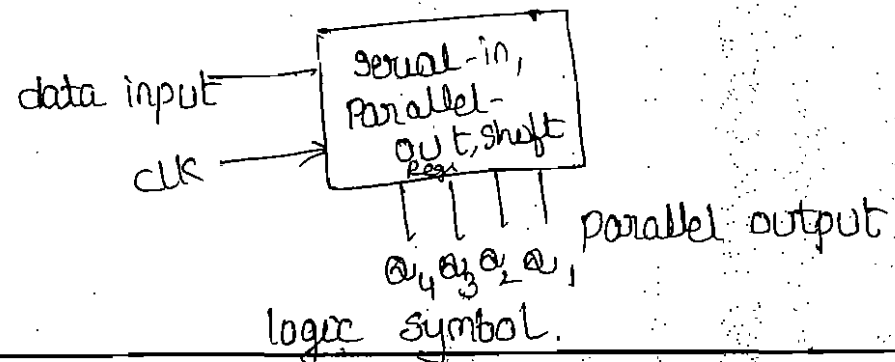 data input
serial-in,
Parallel-
out, shift
Regi
CLK
Q4 Q3 Q2 Q1
parallel output
logic symbol.